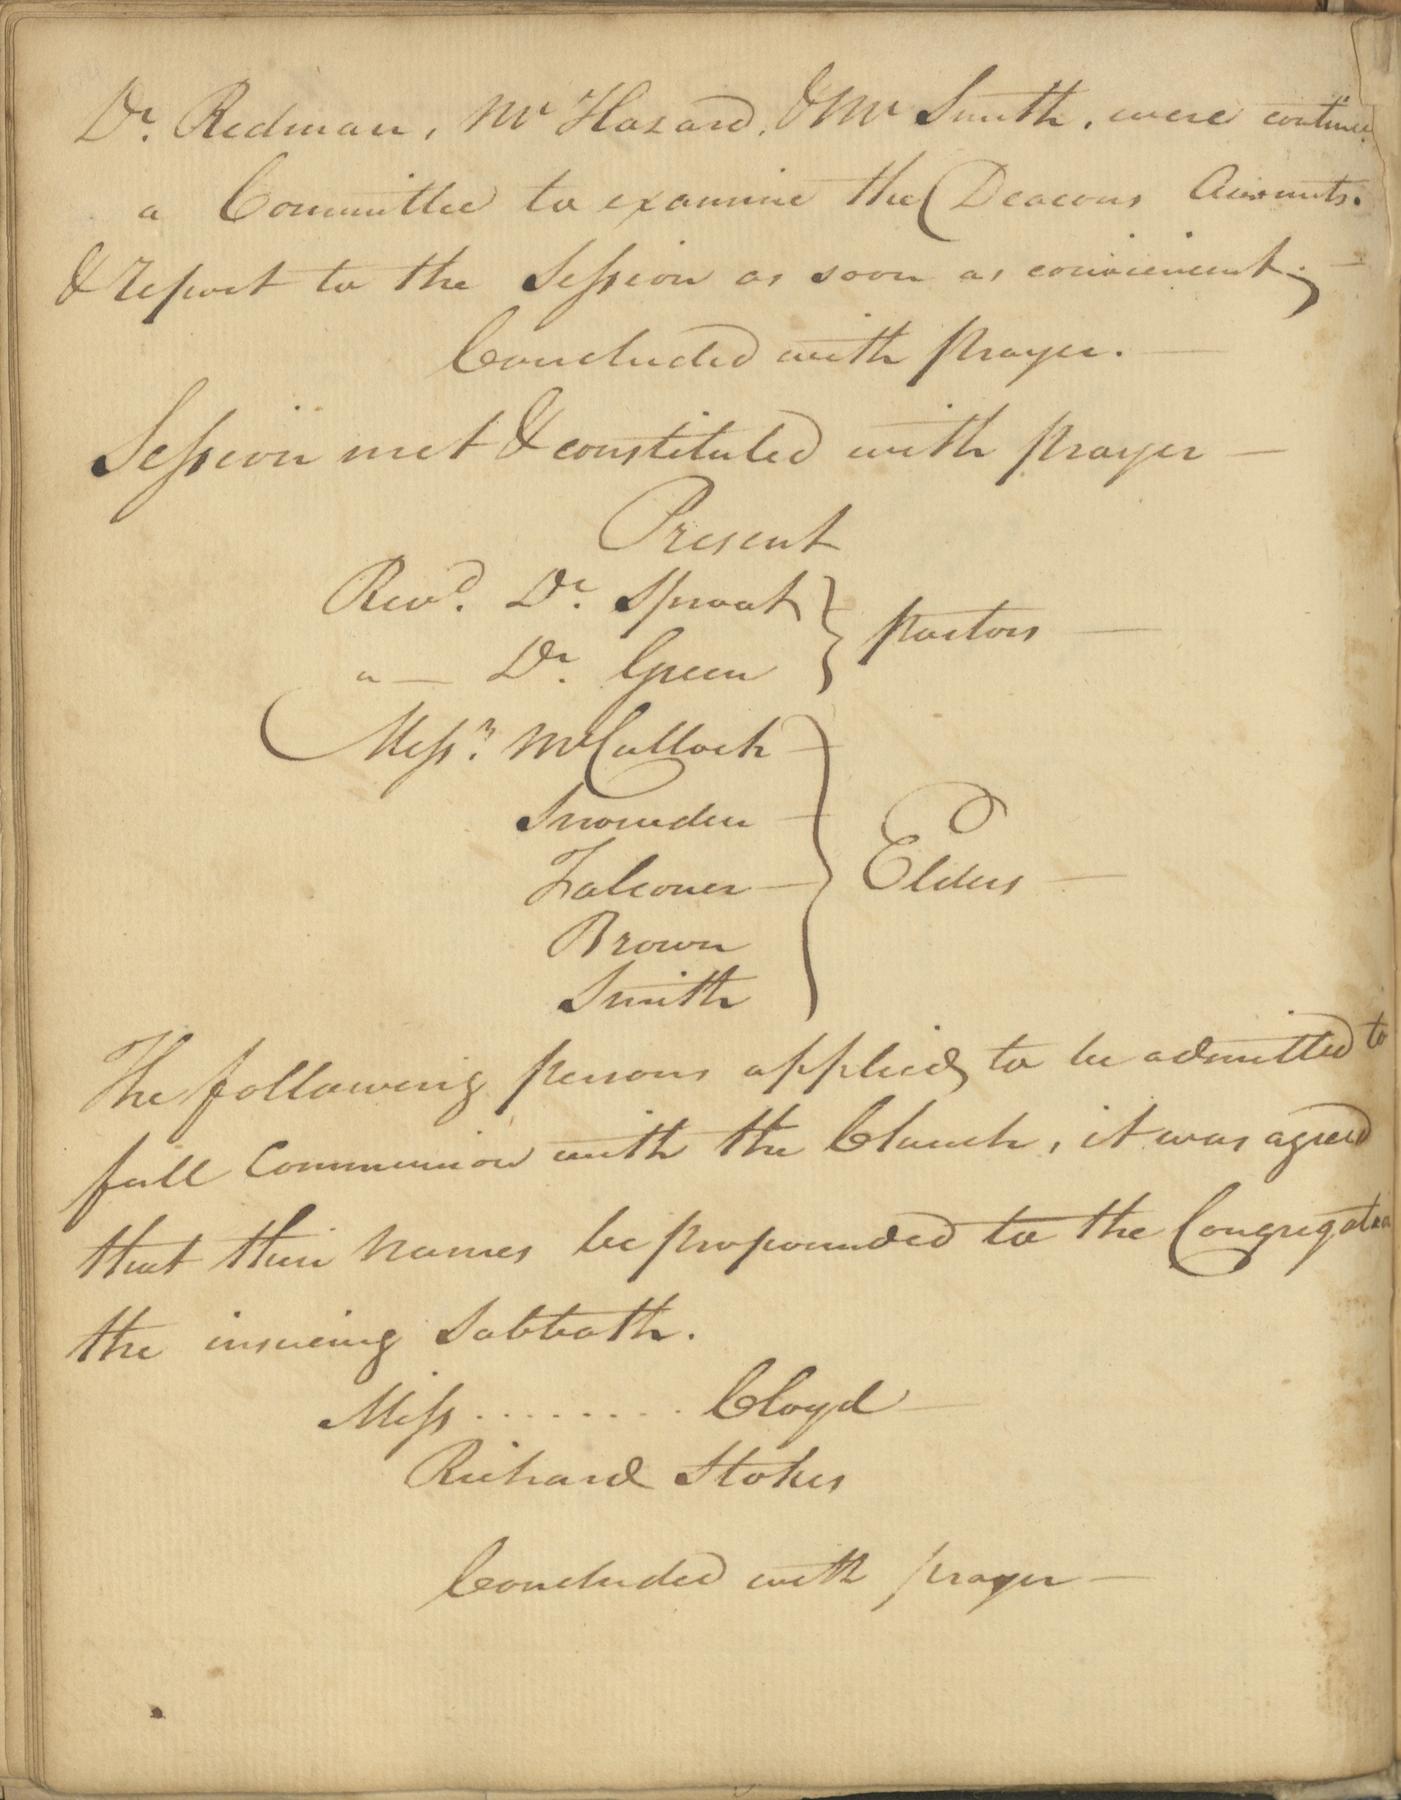 Dr. Redman, Mr Hazard, & Mr Smith, were continued
a Committee to examine the Deacons Accounts.
& report to the Session as soon as convenient;—
Concluded with prayer.—
Session met & constituted with prayer—
Present
Revd. Dr. Sproat } pastors—
"— Dr. Green
Messrs. McCulloch—
Snowden—
Falconer— } Elders—
Brown
Smith
The following persons applied, to be admitted to
full Communion with the Church, it was agreed
that their names be propounded to the Congregation
the insueing Sabbath.
Miss ........ Cloyd—
Richard Stokes
Concluded with prayer—